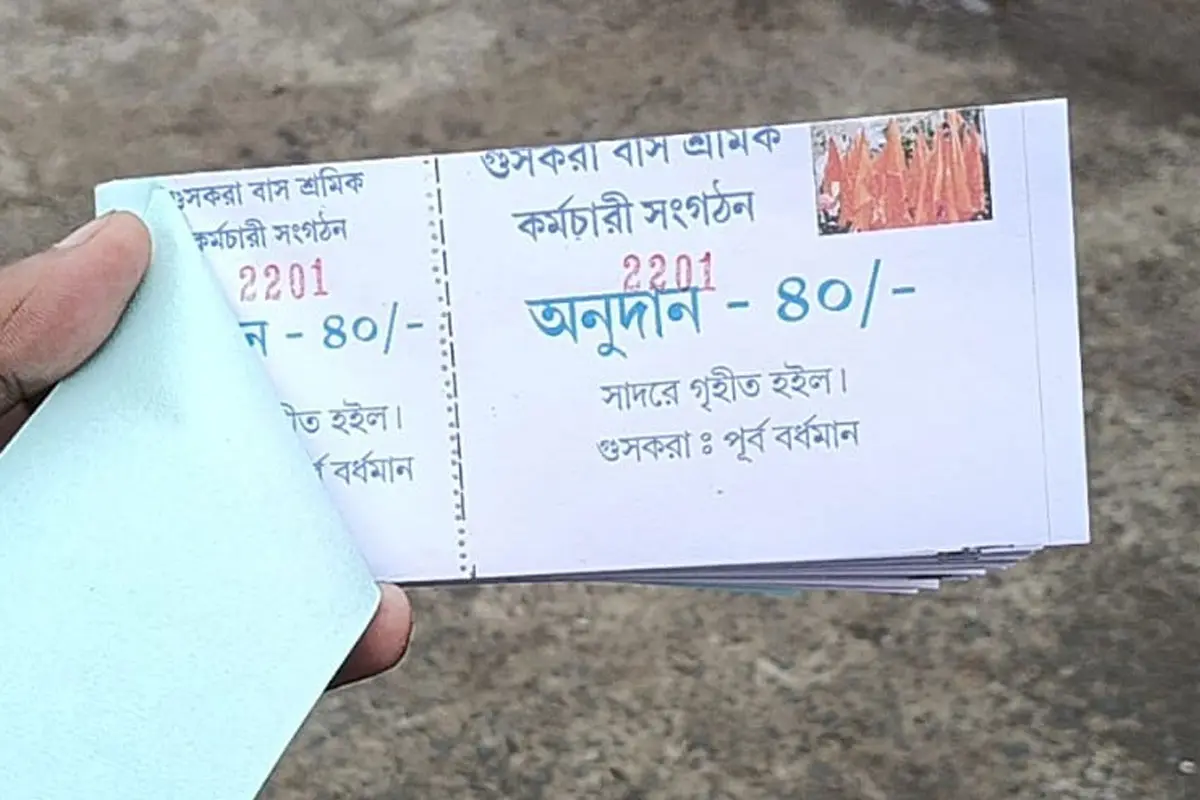 গুসকরা বাস শ্রমিক
কর্মচারী সংগঠন
2201
ন - ৪০/-
ীত হইল।
র্ব বর্ধমান
গুসকরা বাস শ্রমিক
কর্মচারী সংগঠন
2201
অনুদান - ৪০/-
সাদরে গৃহীত হইল।
গুসকরা ঃ পূর্ব বর্ধমান